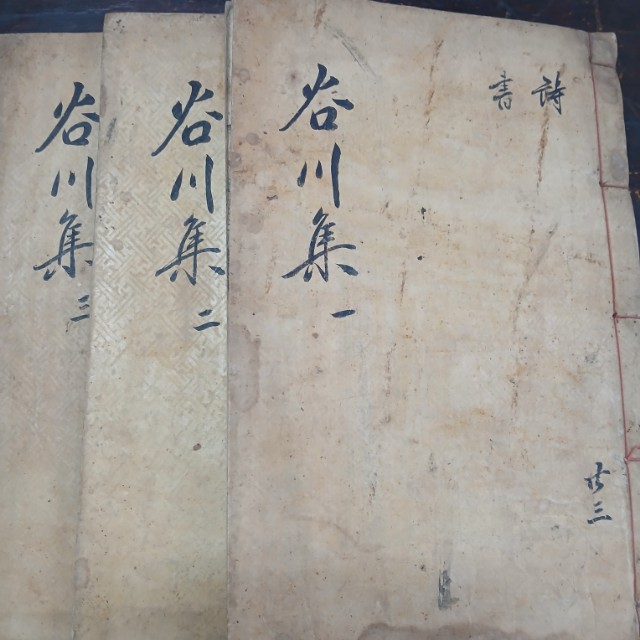 共三
詩
書
谷川集一
谷川集二
谷川集三